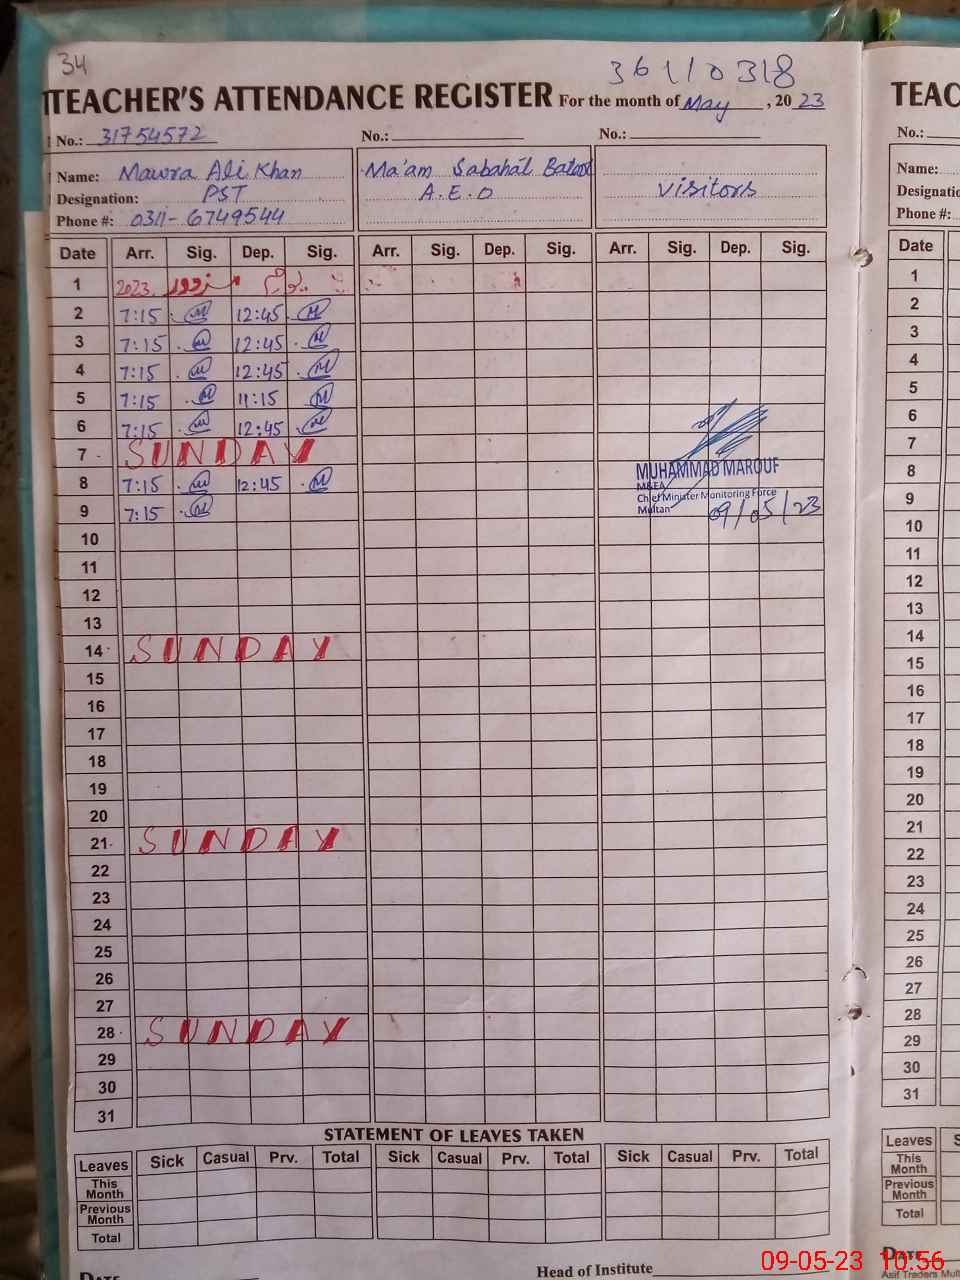 34
36110318
TEACHER'S ATTENDANCE REGISTER For the month of May, 2023
No.: 31754572 No.: No.:
Name: Mawra Ali Khan Ma'am Sabahál visitors
Designation: PST A.E.O
Phone #: 0311-6749544
Date Arr. Sig. Dep. Sig. Arr. Sig. Dep. Sig. Arr. Sig. Dep. Sig.
1 2023 یوم مزدور
2 7:15 M 12:45 M
3 7:15 M 12:45 M
4 7:15 M 12:45 M
5 7:15 M 11:15 M
6 7:15 M 12:45 M
7 SUNDAY
8 7:15 M 12:45 M
MUHAMMAD MAROUF
M&EA
Chief Minister Monitoring Force
Multan 09/05/23
9 7:15 M
10
11
12
13
14 SUNDAY
15
16
17
18
19
20
21 SUNDAY
22
23
24
25
26
27
28 SUNDAY
29
30
31
STATEMENT OF LEAVES TAKEN
Leaves Sick Casual Prv. Total Sick Casual Prv. Total Sick Casual Prv. Total
This Month
Previous Month
Total
DATE Head of Institute
TEAC
No.:
Name:
Designatio
Phone #:
Date
1
2
3
4
5
6
7
8
9
10
11
12
13
14
15
16
17
18
19
20
21
22
23
24
25
26
27
28
29
30
31
Leaves S
This Month
Previous Month
Total
DATE
Asif Traders Mul
09-05-23 10:56